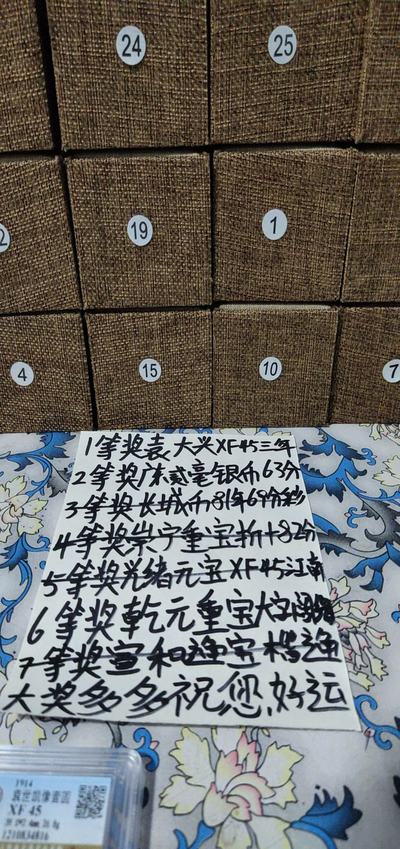 24 25
19 1
4 15 10 7
1等奖袁大头XF45三年
2等奖广东贰毫银币63分
3等奖长城币81年69分彩
4等奖崇宁重宝折十82分
5等奖光绪元宝XF45江南
6等奖乾元重宝大字
7等奖宣和通宝
大奖多多祝您好运
1914
袁世凯像壹圆
XF 45
1210834816